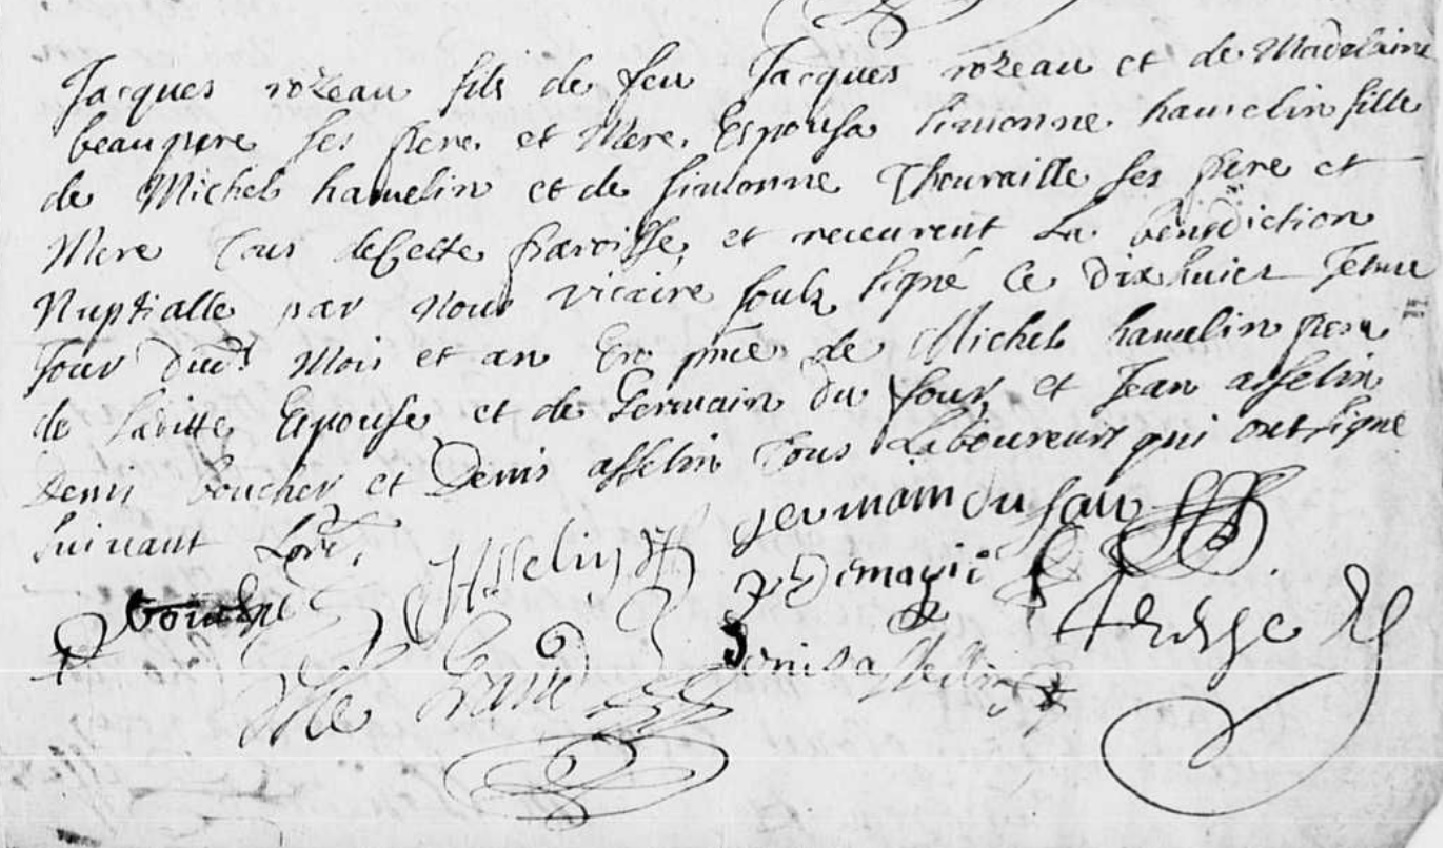 Jacques rozeau fils de feu Jacques rozeau et de Madelaine
beaupere ses pere et Mere. Espousa simonne hamelin fille
de Michel hamelin et de simonne Thouraille ses pere et
Mere tous de cette paroisse, et receurent La benediction
Nuptialle par Nous vicaire soulz signé Ce Dix huict
Jour dud Mois et an En pnce de Michel hamelin pere
de Laditte Espouse et de Germain du four, et Jean asselin
Denis boucher et Denis asselin tous Laboureurs qui ont signe
suivant Lord.
Asselin germain du four
boucher
Denis asselin